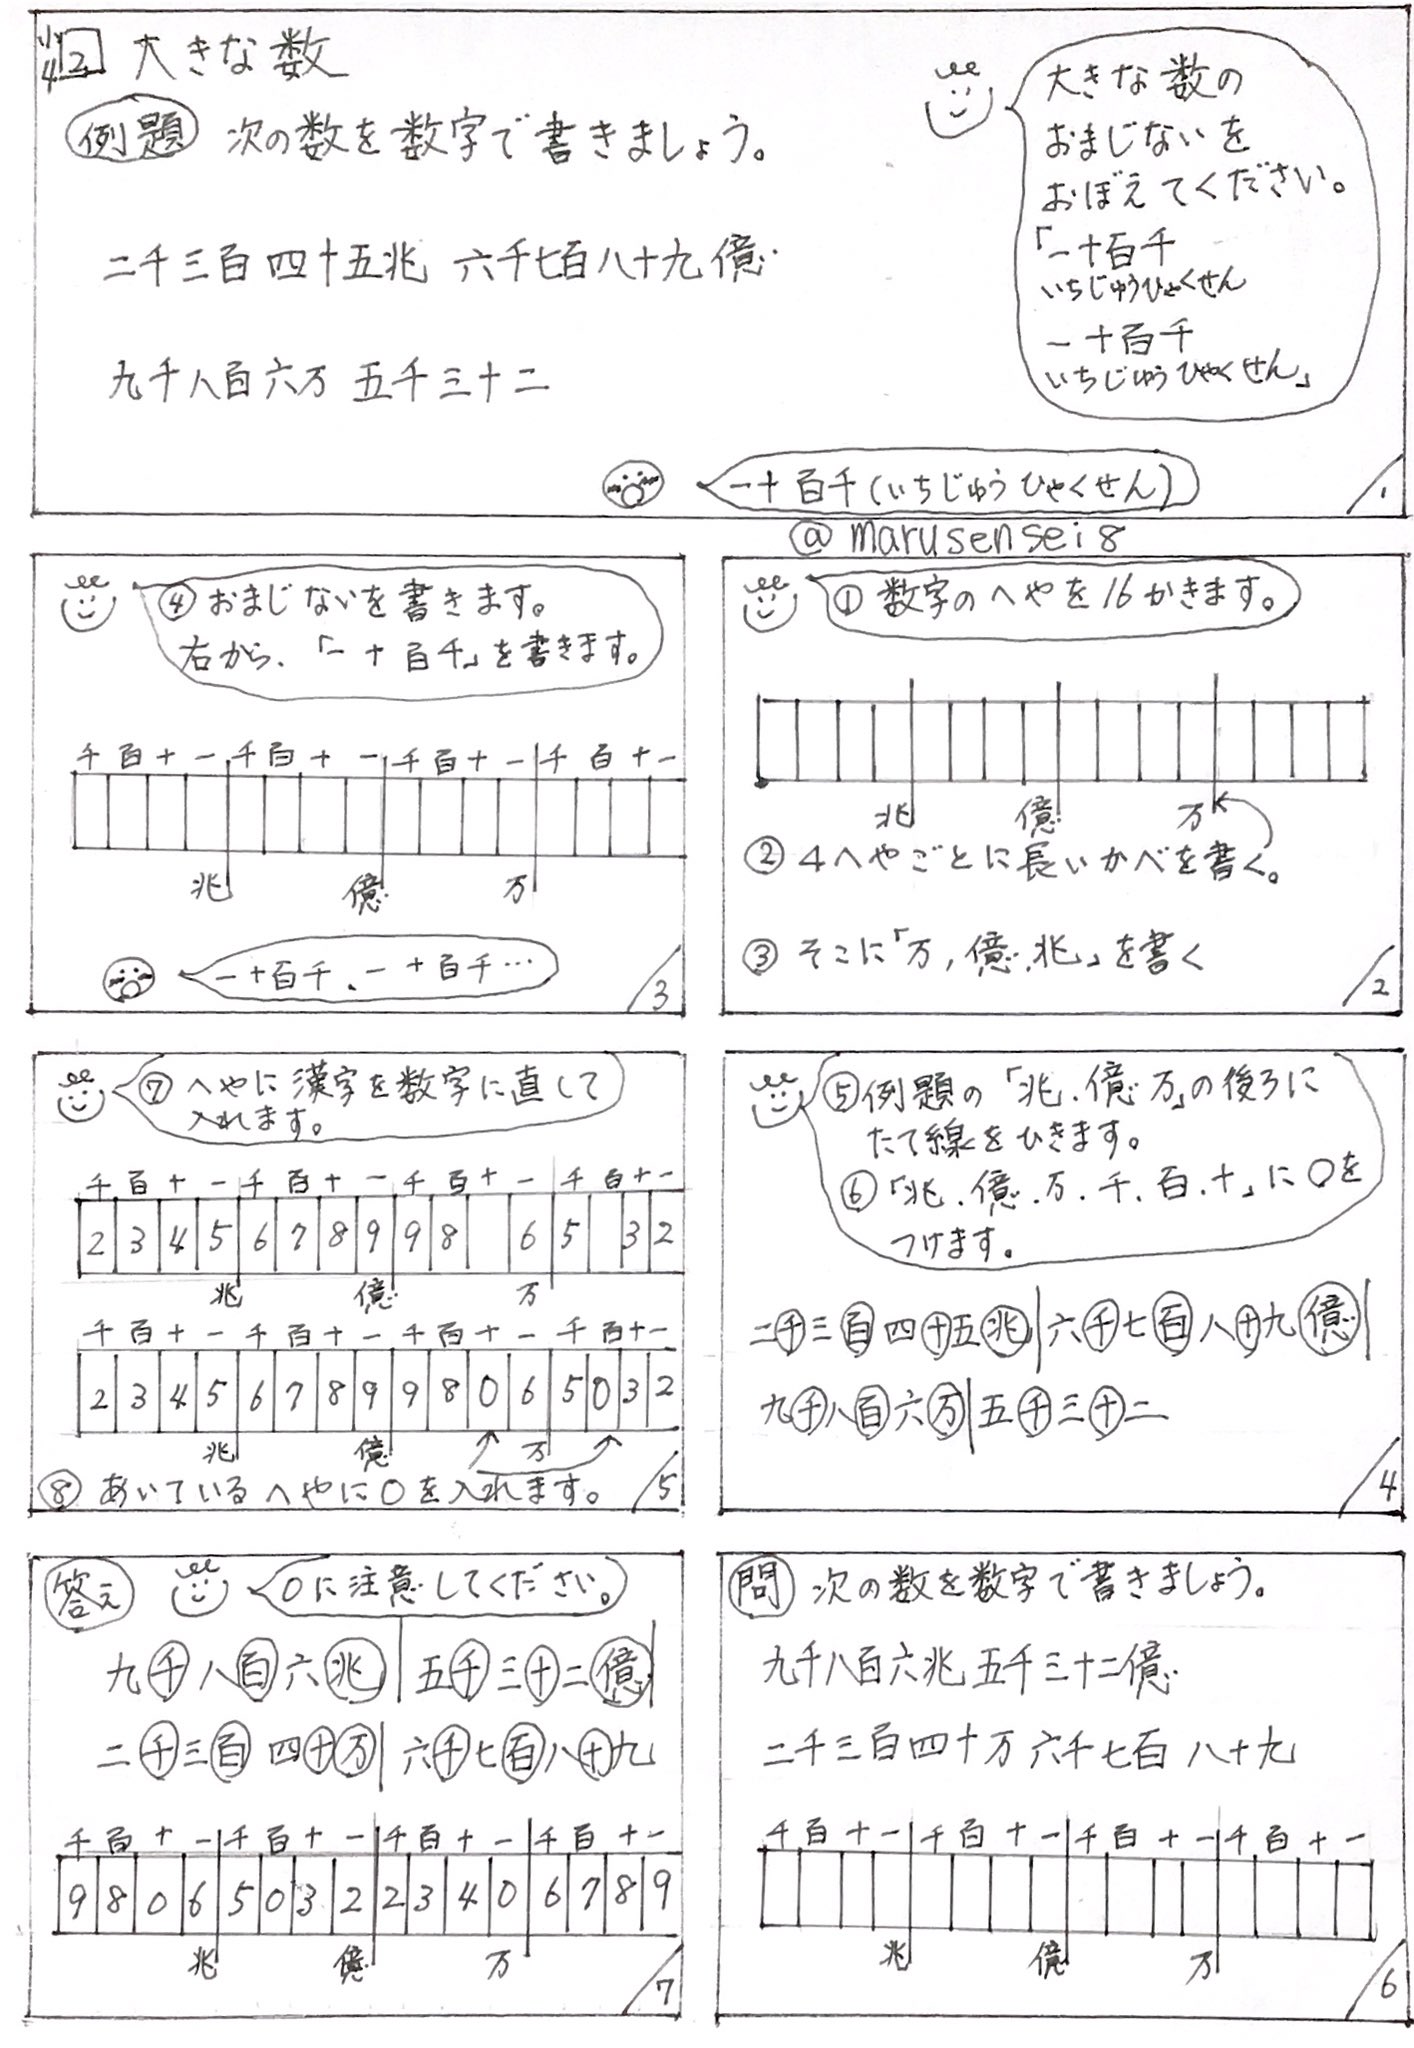 小4 2 大きな数
例題 次の数を数字で書きましょう。
二千三百四十五兆 六千七百八十九億
九千八百六万 五千三十二
大きな数の
おまじないを
おぼえてください。
「一十百千
いちじゅうひゃくせん
一十百千
いちじゅうひゃくせん」
一十百千(いちじゅうひゃくせん)
1
@marusensei8
①数字のへやを16かきます。
兆 億 万
②4へやごとに長いかべを書く。
③そこに「万,億,兆」を書く
2
④おまじないを書きます。
右から、「一十百千」を書きます。
千百十一千百十一千百十一千百十一
兆 億 万
一十百千、一十百千…
3
⑤例題の「兆.億 万」の後ろに
たて線をひきます。
⑥「兆.億.万.千.百.十」に〇を
つけます。
二千三百四十五兆|六千七百八十九億|
九千八百六万|五千三十二
4
⑦へやに漢字を数字に直して
入れます。
千百十一千百十一千百十一千百十一
2 3 4 5 6 7 8 9 9 8 6 5 3 2
兆 億 万
千百十一千百十一千百十一千百十一
2 3 4 5 6 7 8 9 9 8 0 6 5 0 3 2
兆 億 万
⑧あいているへやに0を入れます。
5
問 次の数を数字で書きましょう。
九千八百六兆五千三十二億
二千三百四十万六千七百八十九
千百十一千百十一千百十一千百十一
兆 億 万
6
答え 0に注意してください。
九千八百六兆|五千三十二億|
二千三百四十万|六千七百八十九
千百十一千百十一千百十一千百十一
9 8 0 6 5 0 3 2 2 3 4 0 6 7 8 9
兆 億 万
7